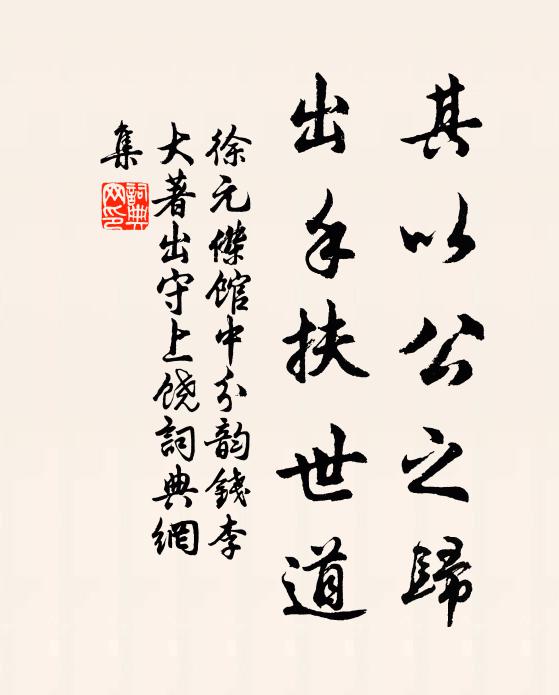 其以公之歸
出手扶世道
徐元傑館中分韵錢李
大著出守上饒詞典網
集
詞典網印